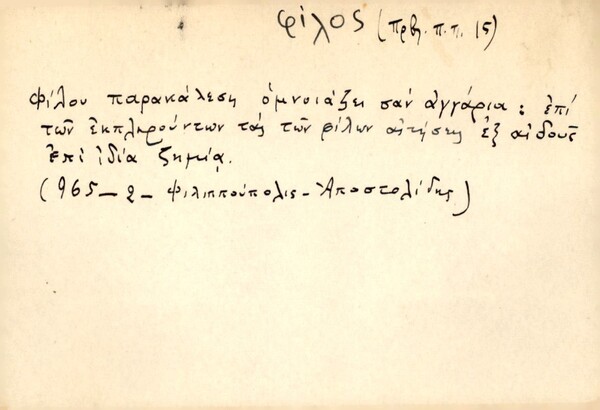 φίλος (πρβ. π.π. 15)
Φίλου παρακάλεση ὁμνοιάζει σάν ἀγγάρια: ἐπί
τῶν ἐκπληρούντων τάς τῶν φίλων αἰτήσεις ἐξ αἰδοῦς
ἐπί ἰδίᾳ ζημίᾳ.
(965 – 2 – Φιλιππούπολις – Ἀποστολίδης)